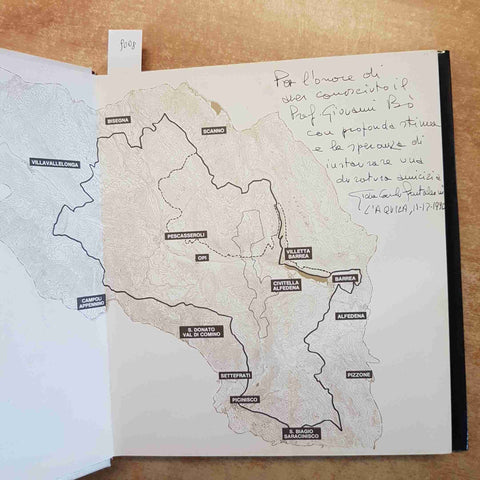 P008
Per l'onore di
aver conosciuto il
Prof. Giovanni Bò
con profonda stima
e la speranza di
instaurare una
duratura amicizia
Gian Carlo
L'AQUILA, 11-17-1990
BISEGNA
SCANNO
VILLAVALLELONGA
PESCASSEROLI
OPI
VILLETTA
BARREA
BARREA
CIVITELLA
ALFEDENA
CAMPOLI
APPENNINO
ALFEDENA
S. DONATO
VAL DI COMINO
SETTEFRATI
PIZZONE
PICINISCO
S. BIAGIO
SARACINISCO